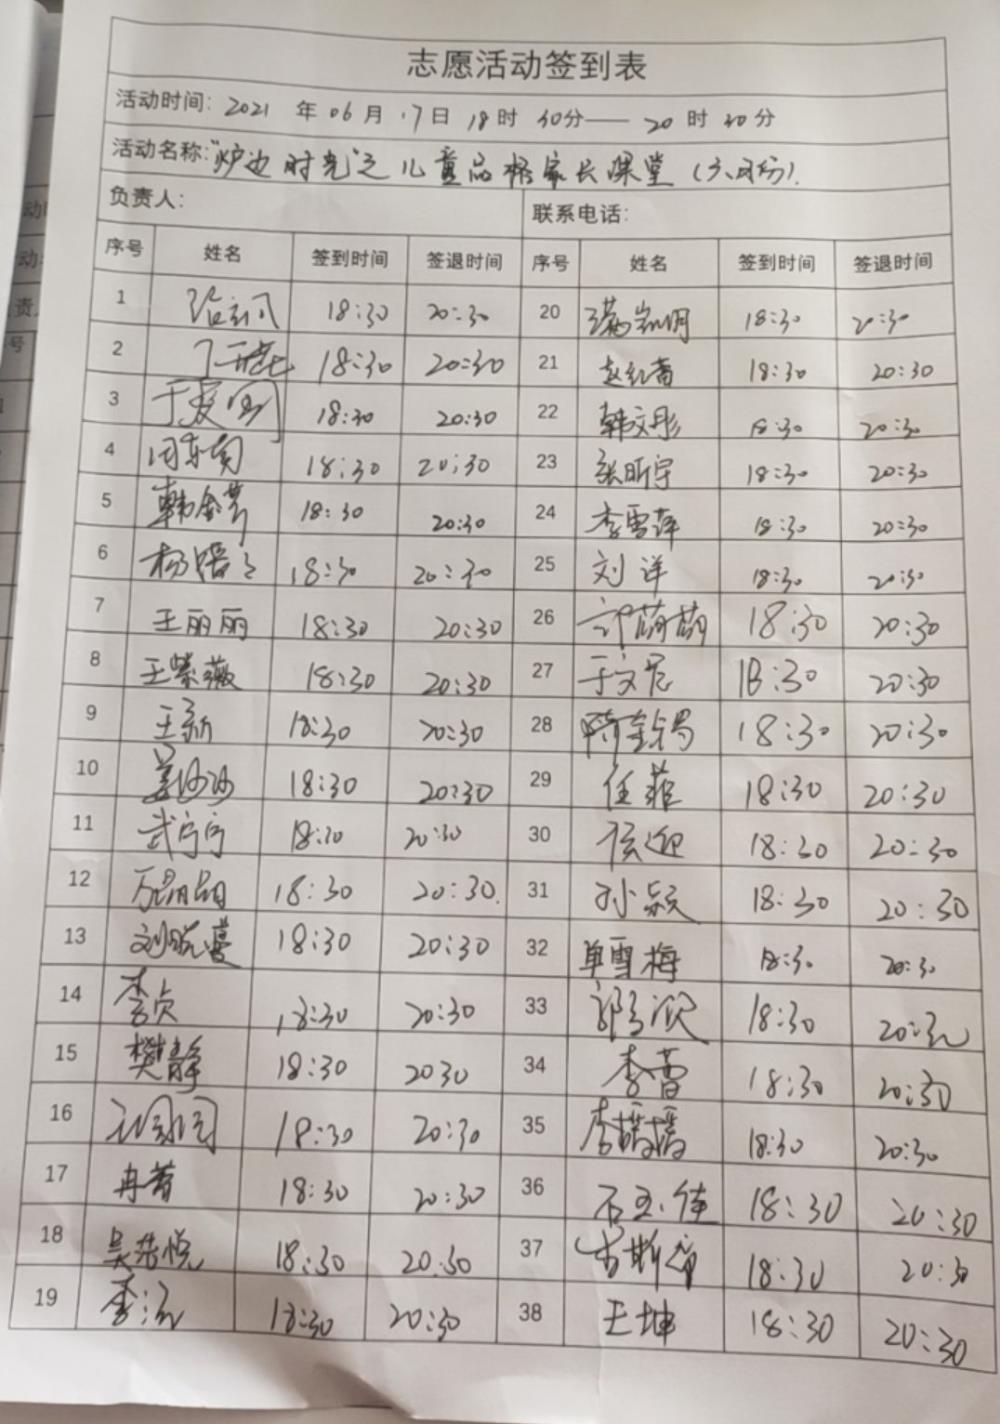 志愿活动签到表
活动时间：2021 年 06 月 17 日 18 时 30 分—— 20 时 30 分
活动名称："炉边时光"之儿童品格家长课堂（六月份）.
负责人： 联系电话：
序号 姓名 签到时间 签退时间 序号 姓名 签到时间 签退时间
1 18:30 20:30 20 18:30 20:30
2 18:30 20:30 21 18:30 20:30
3 18:30 20:30 22 韩文彤 18:30 20:30
4 18:30 20:30 23 张昕宇 18:30 20:30
5 18:30 20:30 24 李雪萍 18:30 20:30
6 18:30 20:30 25 刘洋 18:30 20:30
7 王丽丽 18:30 20:30 26 18:30 20:30
8 王紫薇 18:30 20:30 27 18:30 20:30
9 王新 18:30 20:30 28 18:30 20:30
10 姜沙沙 18:30 20:30 29 任菲 18:30 20:30
11 武宁宁 18:30 20:30 30 18:30 20:30
12 18:30 20:30. 31 孙颖 18:30 20:30
13 刘晓蔓 18:30 20:30 32 单雪梅 18:30 20:30
14 李贞 18:30 20:30 33 18:30 20:30
15 樊静 18:30 2030 34 李蕾 18:30 20:30
16 18:30 20:30 35 18:30 20:30
17 冉菁 18:30 20:30 36 石玉佳 18:30 20:30
18 吴浩悦 18:30 20:30 37 18:30 20:30
19 18:30 20:30 38 王坤 18:30 20:30